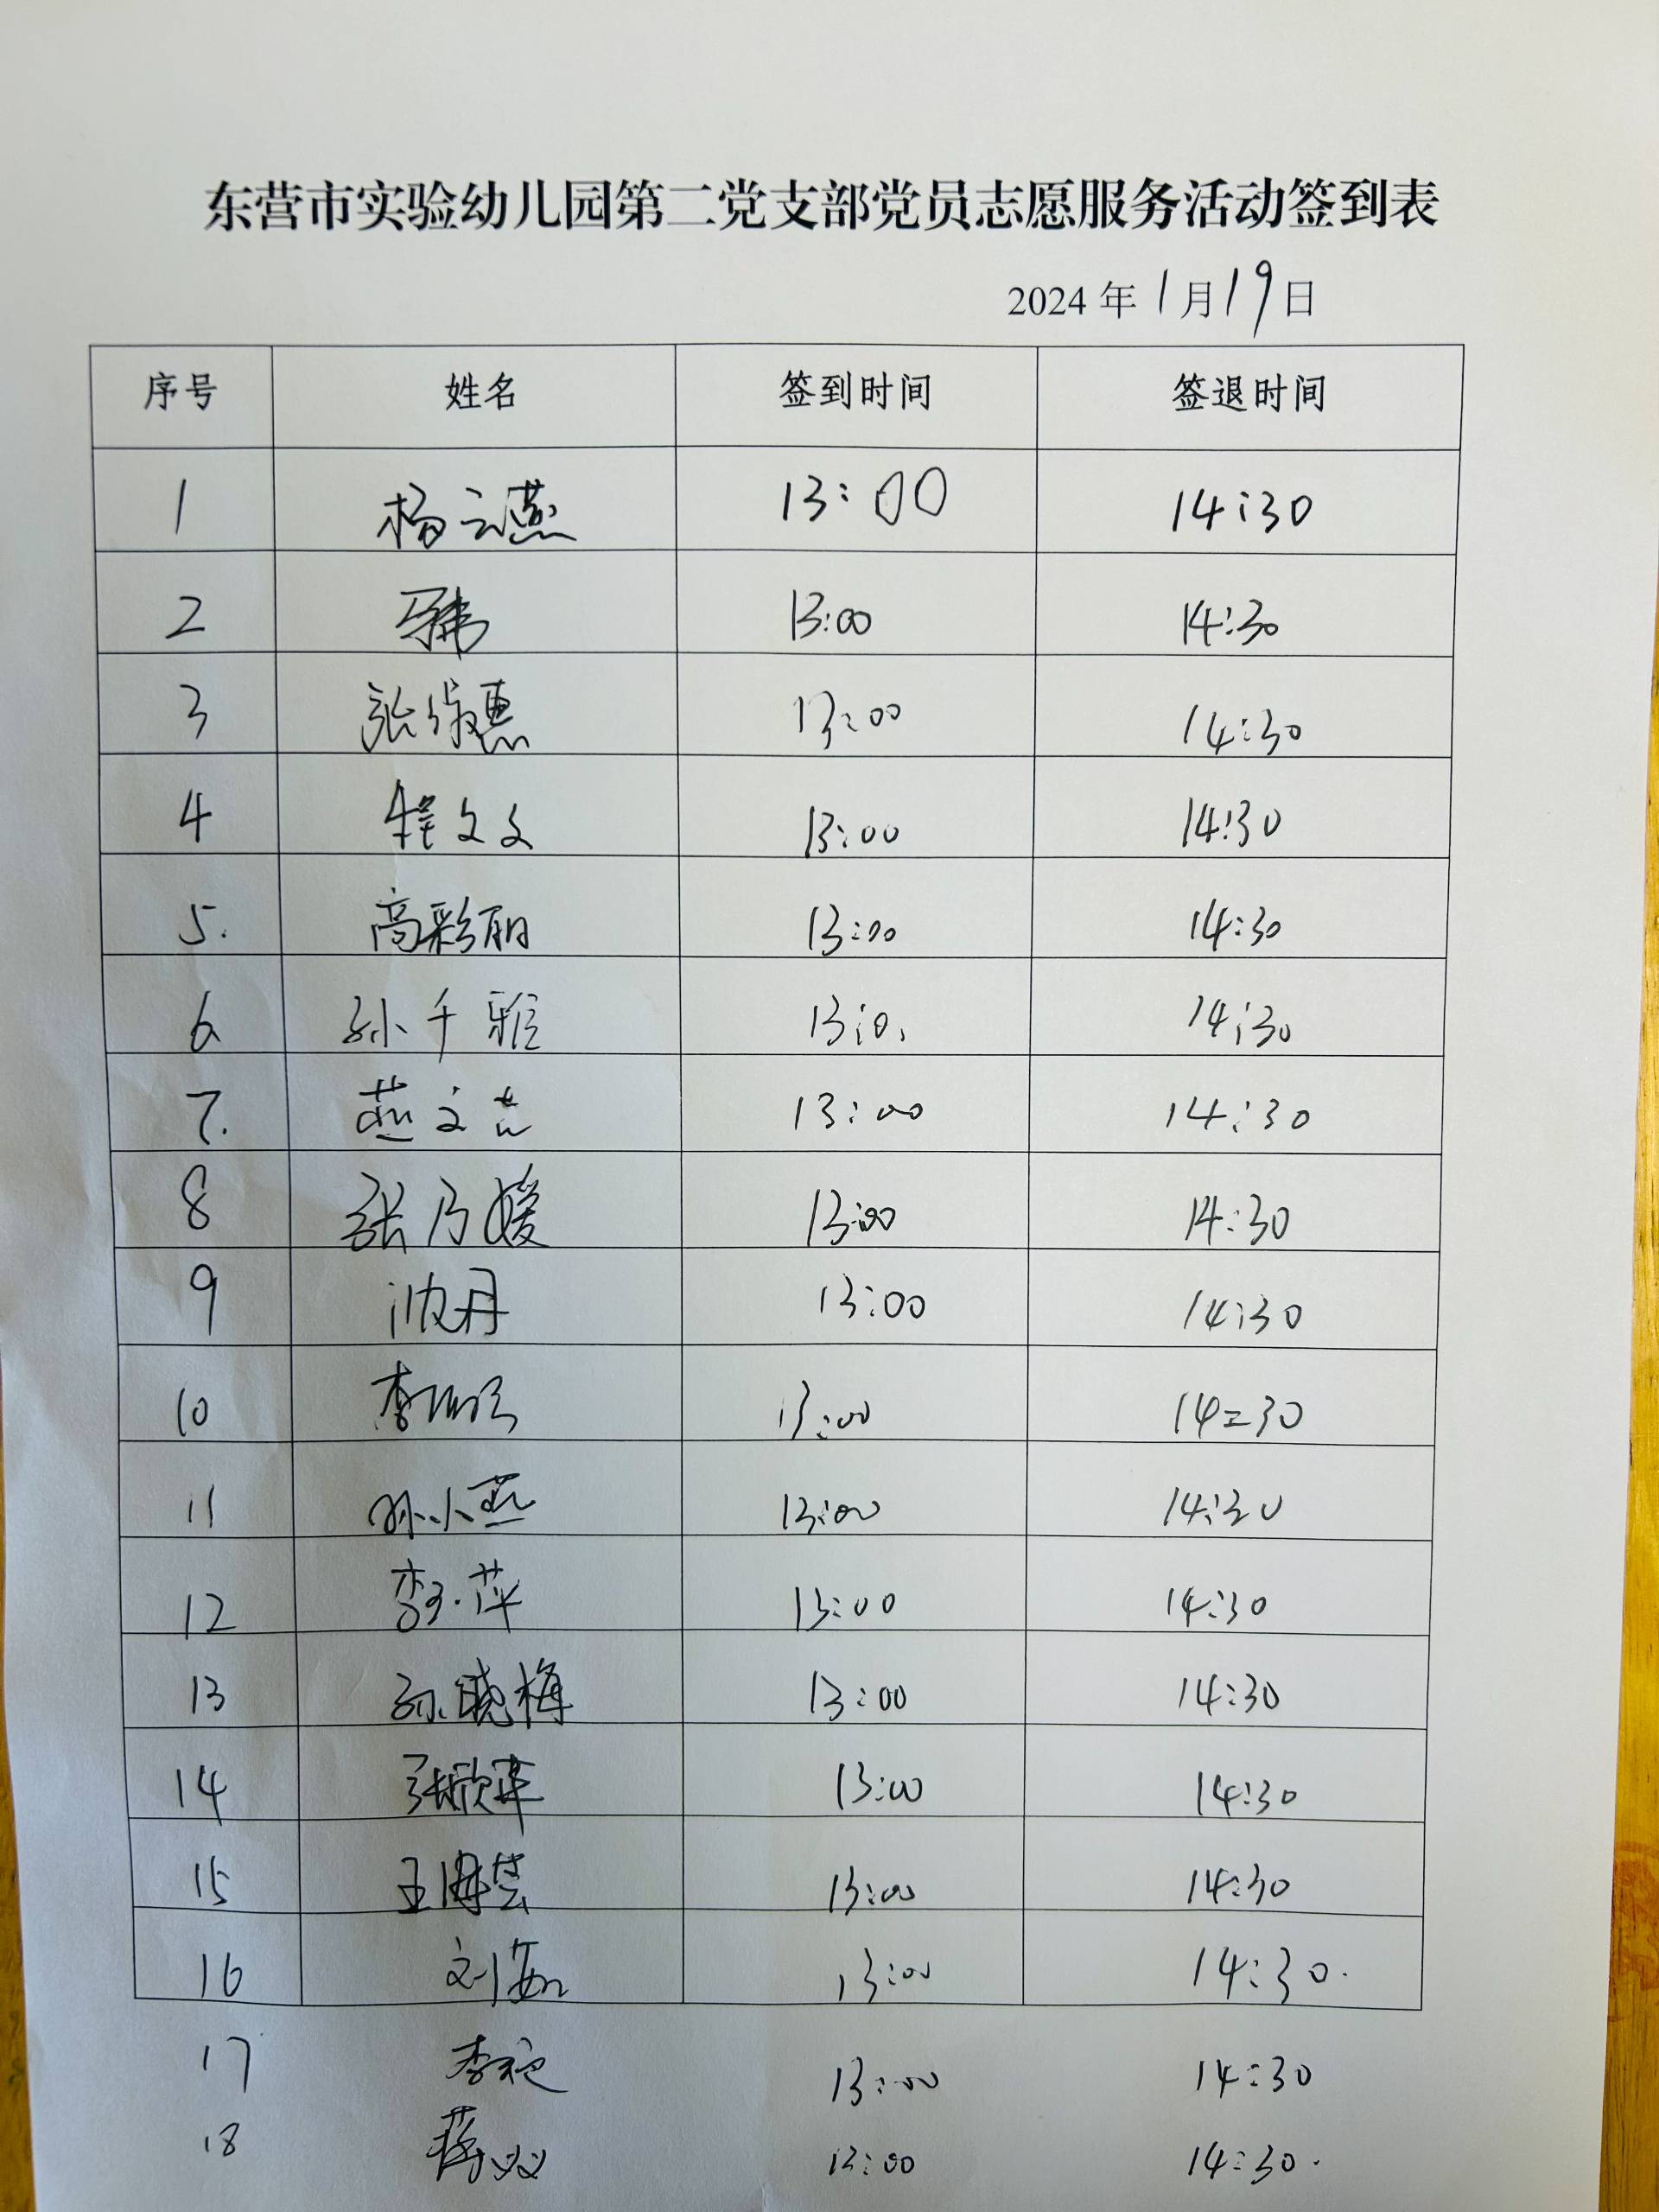 东营市实验幼儿园第二党支部党员志愿服务活动签到表
2024 年 1 月 19 日
序号 姓名 签到时间 签退时间
1 杨云燕 13:00 14:30
2 13:00 14:30
3 13:00 14:30
4 程文文 13:00 14:30
5. 高彩丽 13:00 14:30
6 孙千雅 14:30
7. 燕 13:00 14:30
8 张乃媛 13:00 14:30
9 沈丹 13:00 14:30
10 李 13:00 14:30
11 孙小燕 13:00 14:30
12 李萍 13:00 14:30
13 孙晓梅 13:00 14:30
14 张欣苹 13:00 14:30
15 王海芸 13:00 14:30
16 刘茹 13:00 14:30.
17 李艳 13:00 14:30
18 蒋双双 13:00 14:30.